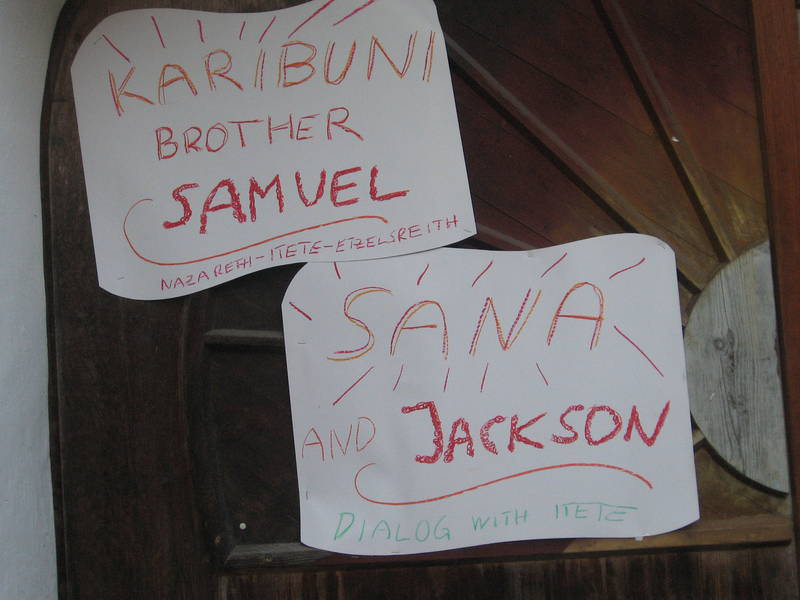 KARIBUNI
BROTHER
SAMUEL
NAZARETH-ITETE-ETZELSREITH
SANA
AND JACKSON
DIALOG WITH ITETE